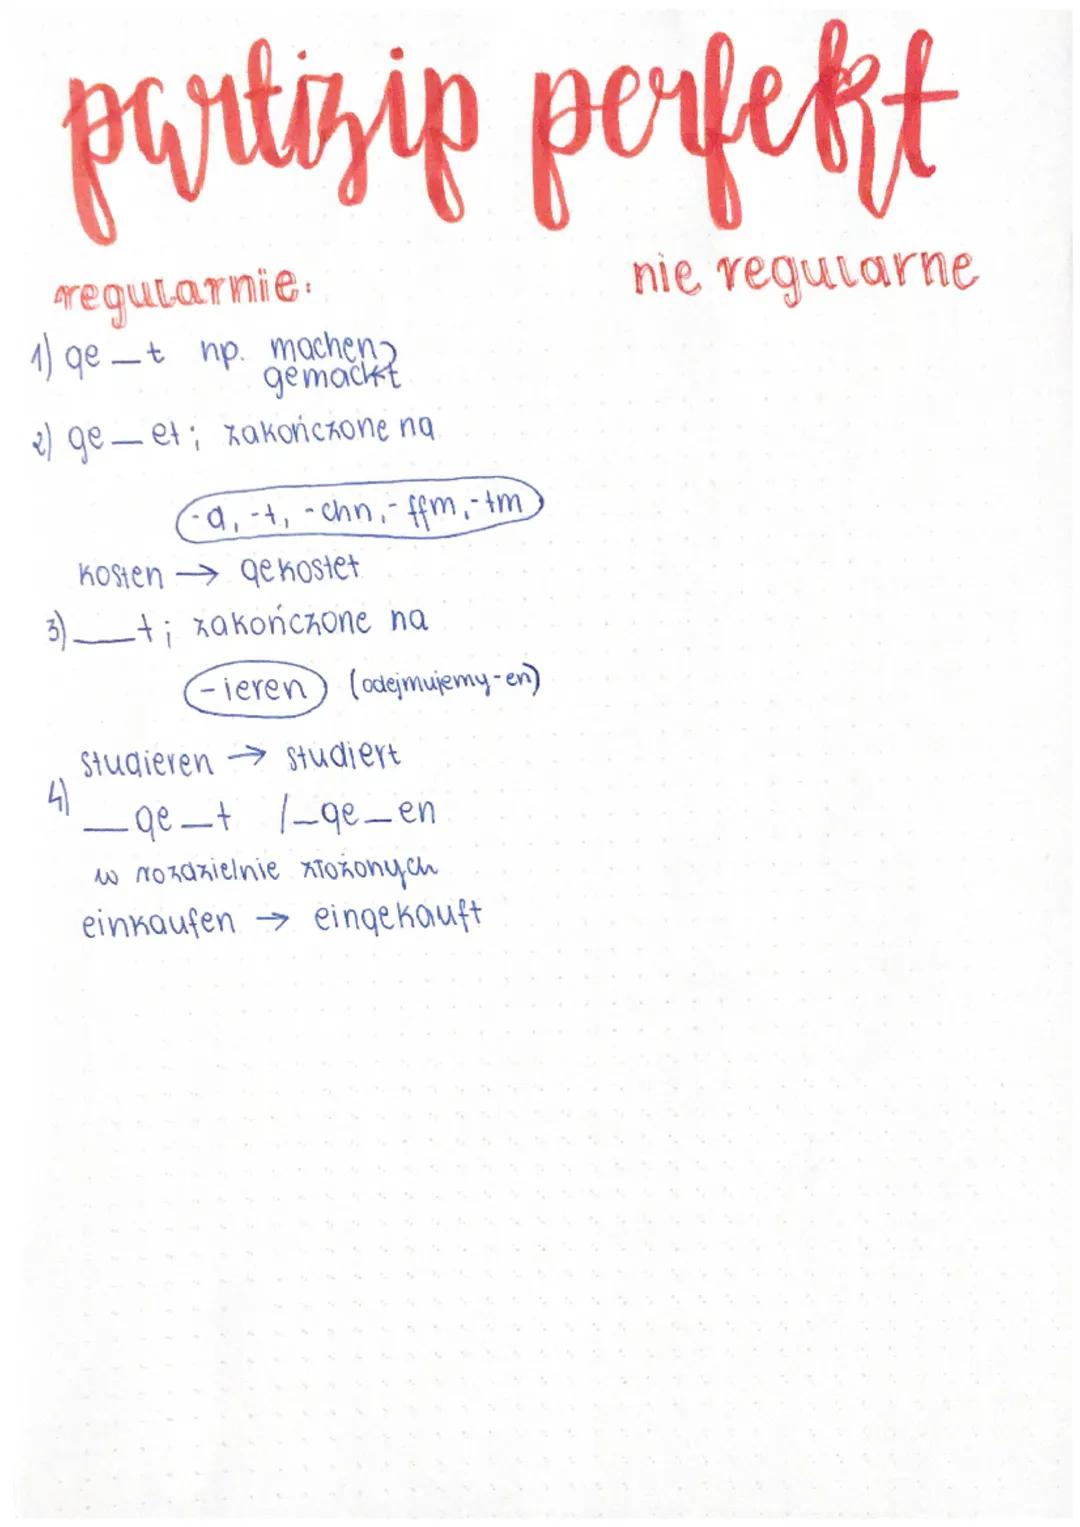 partizip perfekt
regularnie:
nie regularne
1) ge _ t np. machen
gemackt
2) ge _ et; zakończone na
-d, -t, -chn, -ffm, -tm
kosten → gekostet
3) __t; zakończone na
-ieren (odejmujemy -en)
studieren → studiert
4) _ge_t /_ge_en
w rozdzielnie złożonych
einkaufen → eingekauft